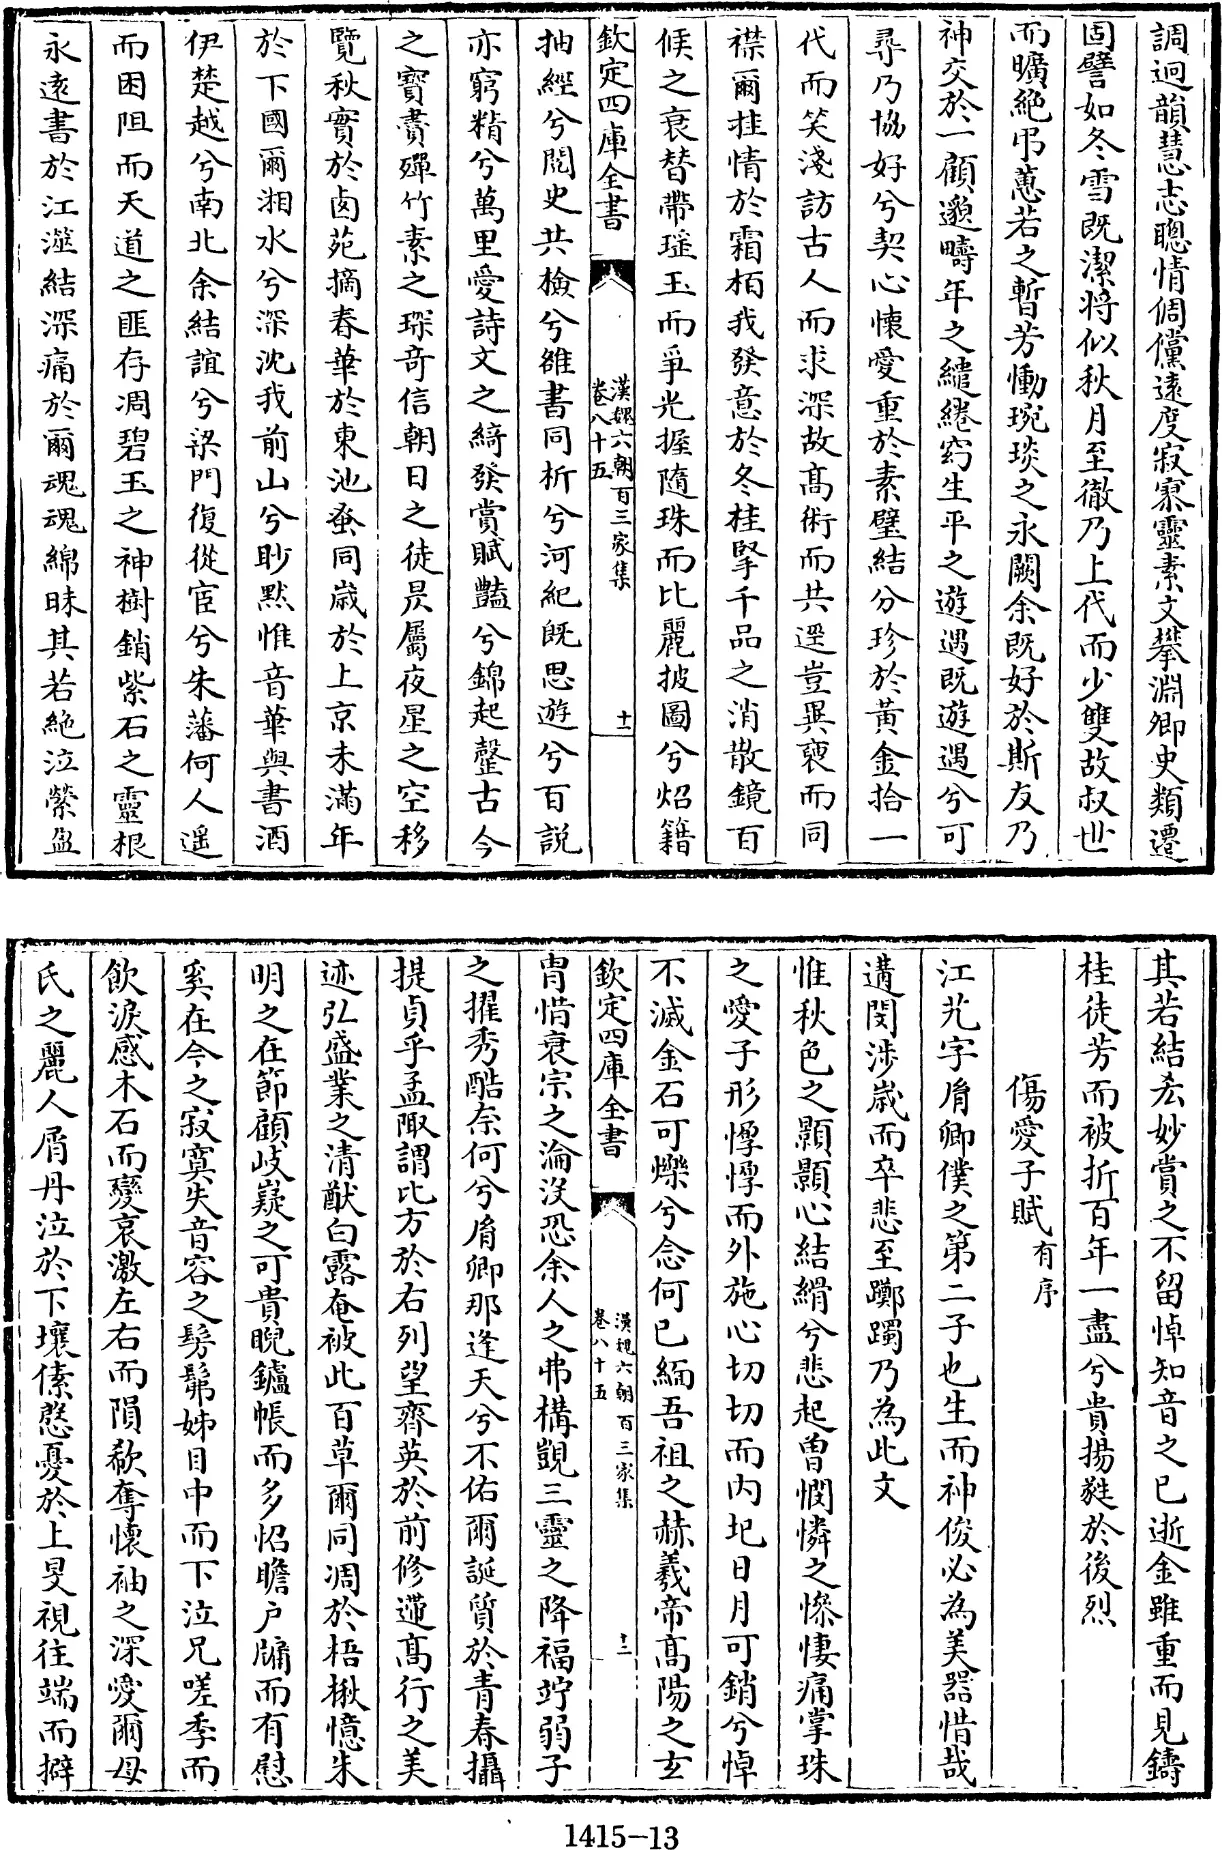 調迥韻慧志聰情倜儻遠度寂寥靈素文攀淵卿史類遷
固譬如冬雪既潔将似秋月至徹乃上代而少雙故叔世
而曠絶弔蕙若之暫芳慟琬琰之永闕余既好於斯友乃
神交於一顧邈疇年之繾綣窮生平之遊遇既遊遇兮可
尋乃協好兮契心懐愛重於素璧結分珍於黄金拾一
代而笑淺訪古人而求深故髙術而共逕豈異褏而同
襟爾挂情於霜栢我發意於冬桂擥千品之消散鏡百
候之衰替帶瑶玉而爭光握隨珠而比麗披圖兮炤籍
欽定四庫全書
漢魏六朝百三家集
卷八十五
十一
抽經兮閲史共檢兮雒書同析兮河紀既思遊兮百説
亦窮精兮萬里愛詩文之綺發賞賦豔兮錦起鏧古今
之寳賮殫竹素之琛竒信朝日之徒昃屬夜星之空移
覽秋實於卤苑摘春華於東池奄同歳於上京未滿年
於下國爾湘水兮深沈我前山兮眇黙惟音華與書酒
伊楚越兮南北余結誼兮梁門復從宦兮朱藩何人遥
而困阻而天道之匪存凋碧玉之神樹銷紫石之靈根
永逺書於江澨結深痛於爾魂魂綿昧其若絶泣縈盈
其若結𠫤妙賞之不留悼知音之已逝金雖重而見鑄
桂徒芳而被折百年一盡兮貴揚蕤於後烈
傷愛子賦有序
江艽字胤卿僕之第二子也生而神俊必為美器惜哉
遘閔渉歳而卒悲至躑躅乃為此文
惟秋色之顥顥心結縎兮悲起曾憫憐之慘悽痛掌珠
之愛子形惸惸而外施心切切而内圮日月可銷兮悼
不滅金石可爍兮念何已緬吾祖之赫羲帝髙陽之玄
欽定四庫全書
漢魏六朝百三家集
卷八十五
十二
胄惜衰宗之淪没恐余人之弗構覬三靈之降福竚弱子
之擢秀酷奈何兮胤卿那逢天兮不佑爾誕質於青春攝
提貞乎孟陬謂比方於右列望齊英於前修遵髙行之美
迹弘盛業之清猷白露奄被此百草爾同凋於梧楸憶朱
明之在節顧岐嶷之可貴睨鑪帳而多怊瞻户牖而有慰
奚在今之寂寞失音容之髣髴姊目中而下泣兄嗟季而
飲淚感木石而變哀激左右而隕欷奪懐袖之深愛爾母
氏之麗人屑丹泣於下壤傃慇憂於上旻視往端而擗
1415-13